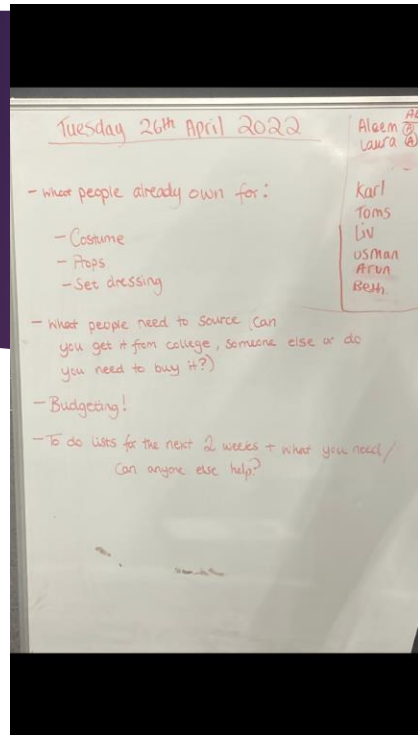 Tuesday 26th April 2022
- What people already own for:
- Costume
- Props
- Set dressing
- What people need to source (can
you get it from college, someone else or do
you need to buy it?)
- Budgeting!
- To do lists for the next 2 weeks + what you need/
Can anyone else help?
Aleem
Laura A
Karl
Toms
Liv
Usman
Arun
Beth